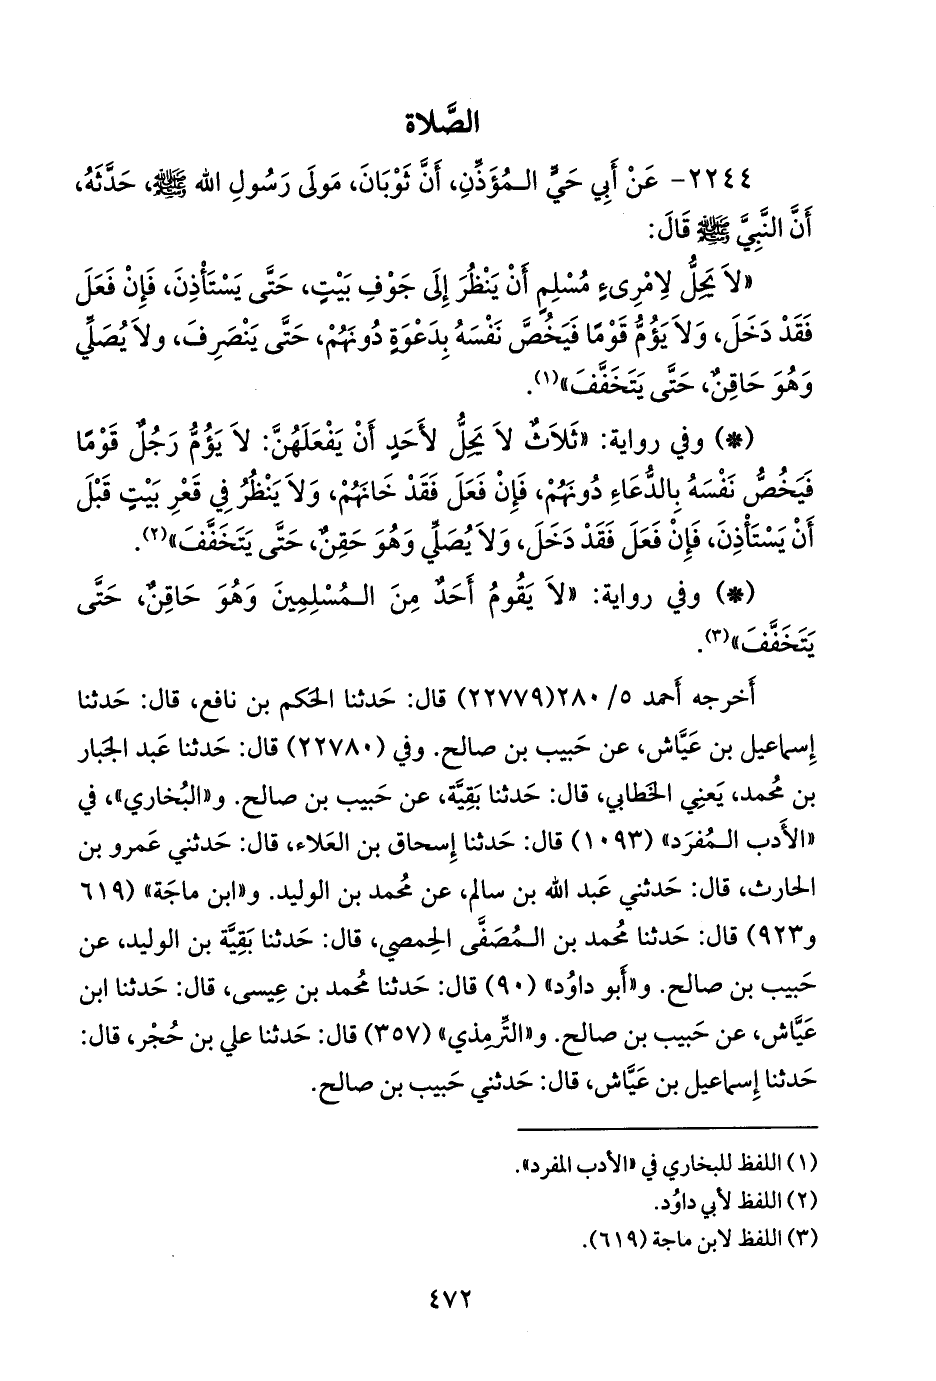 الصَّلاة
٢٢٤٤- عَنْ أَبِي حَيٍّ الـمُؤَذِّنِ، أَنَّ ثَوْبَانَ، مَولَى رَسُولِ الله ﷺ، حَدَّثَهُ،
أَنَّ النَّبِيَّ ﷺ قَالَ:
«لاَ يَحِلُّ لاِمْرِىءٍ مُسْلِمٍ أَنْ يَنْظُرَ إِلَى جَوْفِ بَيْتٍ، حَتَّى يَسْتَأْذِنَ، فَإِنْ فَعَلَ
فَقَدْ دَخَلَ، وَلاَ يَؤُمُّ قَوْمًا فَيَخُصَّ نَفْسَهُ بِدَعْوَةٍ دُونَهُمْ، حَتَّى يَنْصَرِفَ، ولاَ يُصَلِّي
وَهُوَ حَاقِنٌ، حَتَّى يَتَخَفَّفَ»(١).
(*) وفي رواية: «ثَلاَثٌ لاَ يَحِلُّ لأَحَدٍ أَنْ يَفْعَلَهُنَّ: لاَ يَؤُمُّ رَجُلٌ قَوْمًا
فَيَخُصُّ نَفْسَهُ بِالدُّعَاءِ دُونَهُمْ، فَإِنْ فَعَلَ فَقَدْ خَانَهُمْ، وَلاَ يَنْظُرُ فِي قَعْرِ بَيْتٍ قَبْلَ
أَنْ يَسْتَأْذِنَ، فَإِنْ فَعَلَ فَقَدْ دَخَلَ، وَلاَ يُصَلِّي وَهُوَ حَقِنٌ، حَتَّى يَتَخَفَّفَ»(٢).
(*) وفي رواية: «لاَ يَقُومُ أَحَدٌ مِنَ الـمُسْلِمِينَ وَهُوَ حَاقِنٌ، حَتَّى
يَتَخَفَّفَ»(٣).
أَخرجه أَحمد ٥/ ٢٨٠(٢٢٧٧٩) قال: حَدثنا الحَكم بن نافع، قال: حَدثنا
إِسماعيل بن عَيَّاش، عن حَبيب بن صالح. وفي (٢٢٧٨٠) قال: حَدثنا عَبد الجَبار
بن مُحمد، يَعنِي الخَطابي، قال: حَدثنا بَقِيَّة، عن حَبيب بن صالح. و«البُخاري»، في
«الأَدب الـمُفرَد» (١٠٩٣) قال: حَدثنا إِسحاق بن العَلاء، قال: حَدثني عَمرو بن
الحارث، قال: حَدثني عَبد الله بن سالم، عن مُحمد بن الوليد. و«ابن ماجَة» (٦١٩
و٩٢٣) قال: حَدثنا مُحمد بن الـمُصَفَّى الحِمصي، قال: حَدثنا بَقِيَّة بن الوليد، عن
حَبيب بن صالح. و«أَبو داوُد» (٩٠) قال: حَدثنا مُحمد بن عِيسى، قال: حَدثنا ابن
عَيَّاش، عن حَبيب بن صالح. و«التِّرمِذي» (٣٥٧) قال: حَدثنا علي بن حُجْر، قال:
حَدثنا إِسماعيل بن عَيَّاش، قال: حَدثني حَبيب بن صالح.
(١) اللفظ للبخاري في «الأدب المفرد».
(٢) اللفظ لأَبي داوُد.
(٣) اللفظ لابن ماجة (٦١٩).
٤٧٢